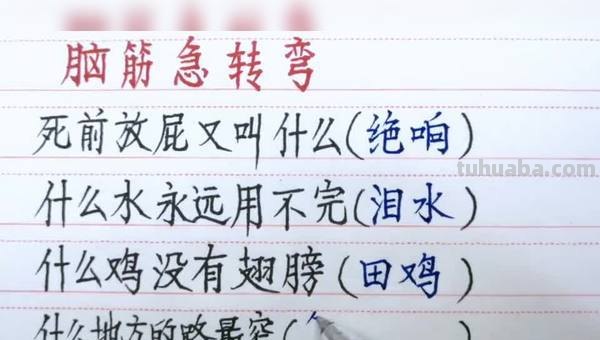 脑筋急转弯
死前放屁又叫什么(绝响)
tuhuaba.com
什么水永远用不完(泪水)
什么鸡没有翅膀(田鸡)
什么地方的路最窄(
)